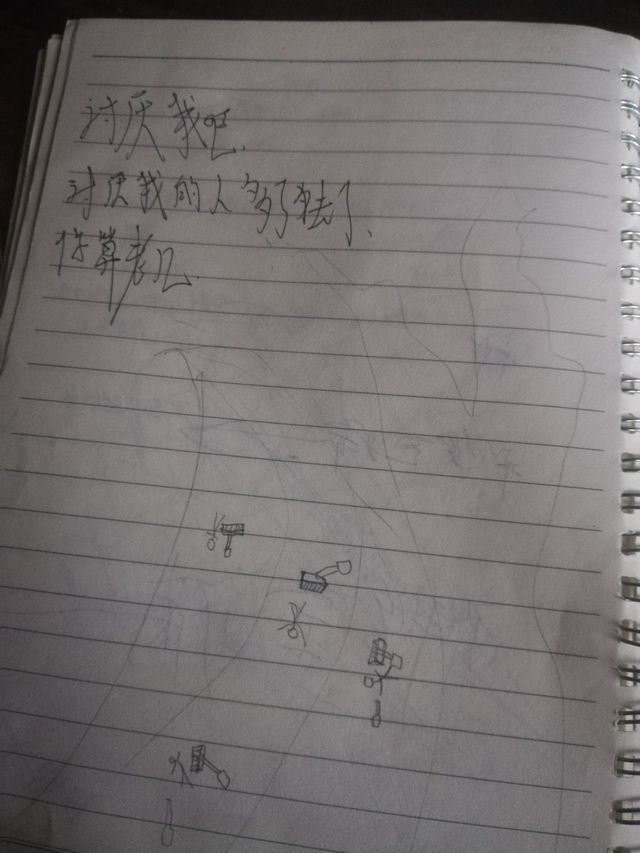 讨厌我吧.
讨厌我的人多了去了、
你算老几.